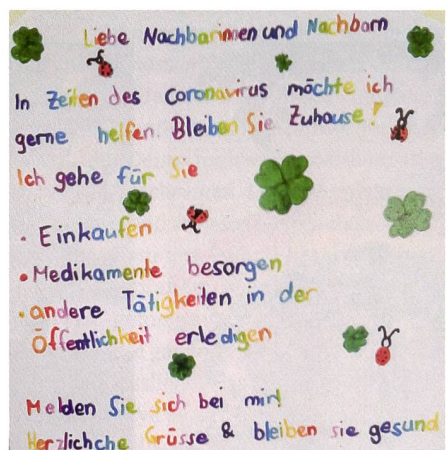 Liebe Nachbarinnen und Nachbarn
In Zeiten des Coronavirus möchte ich
gerne helfen. Bleiben Sie Zuhause!
Ich gehe für Sie
· Einkaufen
• Medikamente besorgen
• andere Tätigkeiten in der
Öffentlichkeit erledigen
Melden Sie sich bei mir!
Herzlichche Grüsse & bleiben sie gesund